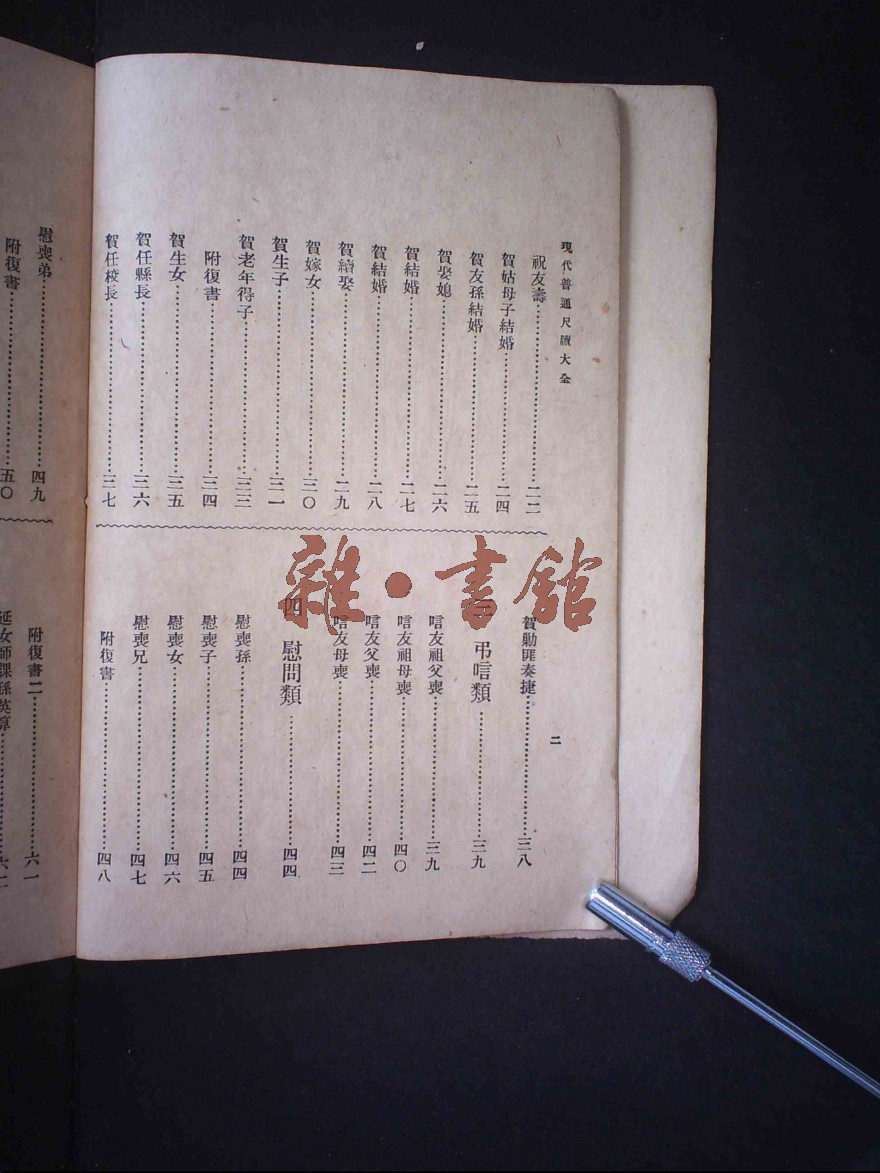 現代普通尺牘大全
祝友壽…………二二
賀姑母子結婚…………二四
賀友孫結婚…………二五
賀娶媳…………二六
賀結婚…………二七
賀結婚…………二八
賀續娶…………二九
賀嫁女…………三〇
賀生子…………三一
賀老年得子…………三三
附復書…………三四
賀生女…………三五
賀任縣長…………三六
賀任校長…………三七
二
賀勦匪奏捷…………三八
弔唁類…………三九
唁友祖父喪…………三九
唁友祖母喪…………四〇
唁友父喪…………四二
唁友母喪…………四三
四 慰問類…………四四
慰喪孫…………四四
慰喪子…………四五
慰喪女…………四六
慰喪兄…………四七
附復書…………四八
慰喪弟…………四九
附復書…………五〇
附復書二…………六一
延女師課孫英算…………
雜·書館